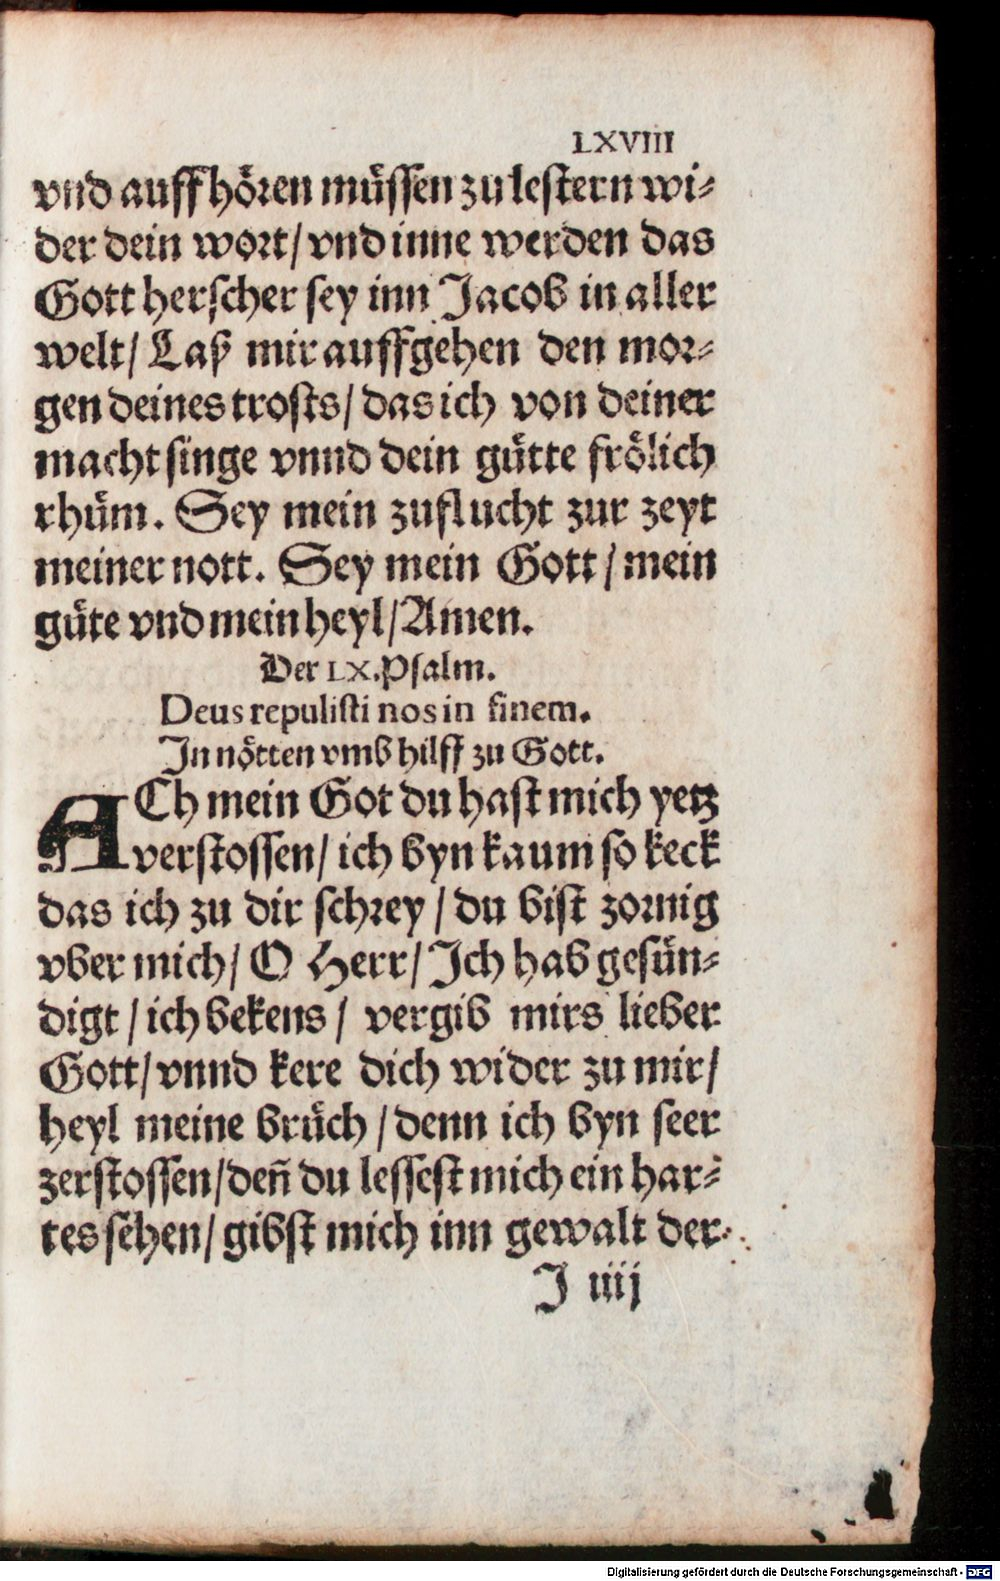 LXVIII
vnd auffhören müssen zu lestern wi-
der dein wort/ vnd inne werden das
Gott herscher sey inn Jacob in aller
welt/ Laß mir auffgehen den mor-
gen deines trosts/ das ich von deiner
macht singe vnnd dein gütte frölich
rhüm. Sey mein zuflucht zur zeyt
meiner nott. Sey mein Gott/ mein
güte vnd mein heyl/ Amen.
Der LX. Psalm.
Deus repulisti nos in finem.
In nötten vmb hilff zu Gott.
ACh mein Got du hast mich yetz
verstossen/ ich byn kaum so keck
das ich zu dir schrey/ du bist zornig
vber mich/ O Herr/ Ich hab gesün-
digt/ ich bekens/ vergib mirs lieber
Gott/ vnnd kere dich wider zu mir/
heyl meine brüch/ denn ich byn seer
zerstossen/ deñ du lessest mich ein har-
tes sehen/ gibst mich inn gewalt der
J iiij
Digitalisierung gefördert durch die Deutsche Forschungsgemeinschaft - DFG